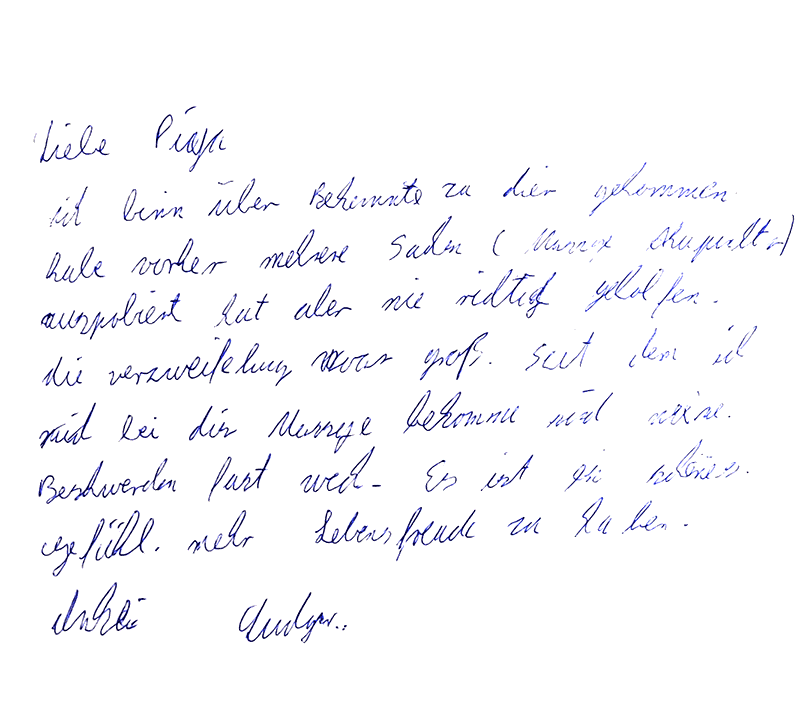 Liebe
ich binn über Bekannte zu dier gekommen.
habe vorher mehrere Sachen (
auspobiert hat aber nie richtig geholfen.
die verzweifelung war groß. Seit dem ich
bei dir bekomme sind meine.
Beschwerden fast wech- Es ist ein schönes.
gefühl. mehr Lebensfreude zu haben.